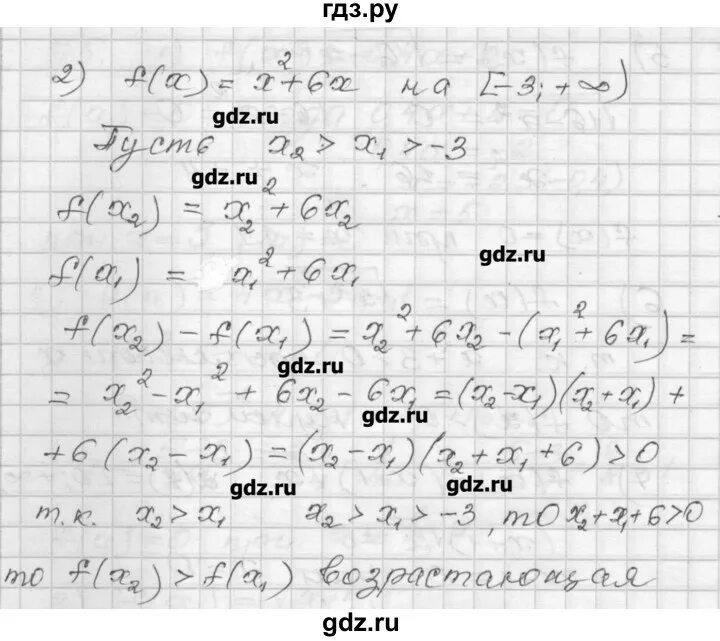 гдз.ру
2) f(x) = x² + 6x на [-3; +∞)
gdz.ru
Пусть x₂ > x₁ > -3
gdz.ru
f(x₂) = x₂² + 6x₂
gdz.ru
f(x₁) = x₁² + 6x₁
f(x₂) - f(x₁) = x₂² + 6x₂ - (x₁² + 6x₁) =
gdz.ru
= x₂² - x₁² + 6x₂ - 6x₁ = (x₂ - x₁)(x₂ + x₁) +
gdz.ru
+ 6(x₂ - x₁) = (x₂ - x₁)(x₂ + x₁ + 6) > 0
gdz.ru gdz.ru
т.к. x₂ > x₁ x₂ > x₁ > -3, то x₂ + x₁ + 6 > 0
то f(x₂) > f(x₁) возрастающая
gdz.ru